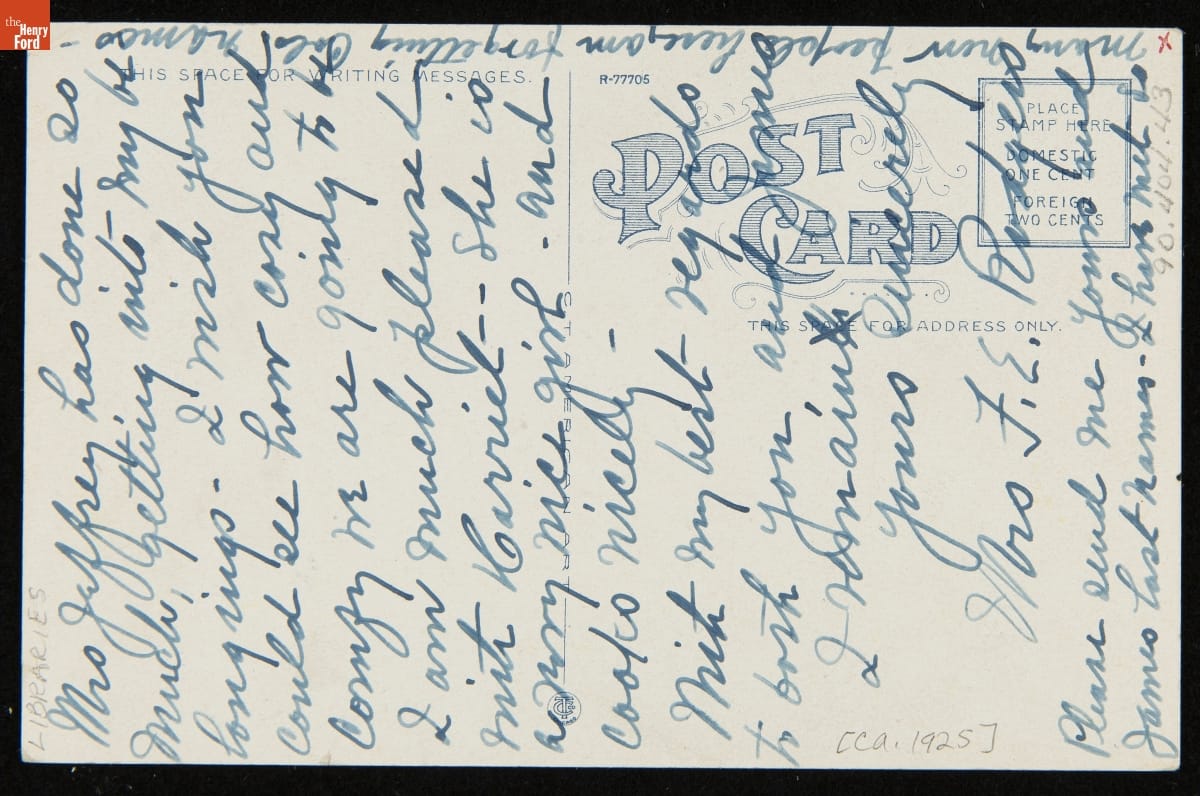 the
Henry
Ford
THIS SPACE FOR WRITING MESSAGES.
R-77705
POST
CARD
PLACE
STAMP HERE
DOMESTIC
ONE CENT
FOREIGN
TWO CENTS
THIS SPACE FOR ADDRESS ONLY.
ST AMERICAN ART
Mrs Jaffrey has done so
much, getting into my be
longings - I wish you
could see how cosy and
comfy we are going to be
I am much pleased
with Harriet - She is
a very nice girl - and
cooks nicely -
With my best regards
to both you and yours
I remain
Yours Sincerely
Mrs F. E.
Please send me yours and
James last names - I have met so
many new people here, am forgetting old names -
LIBRARIES
[ca. 1925]
90.404.413
x